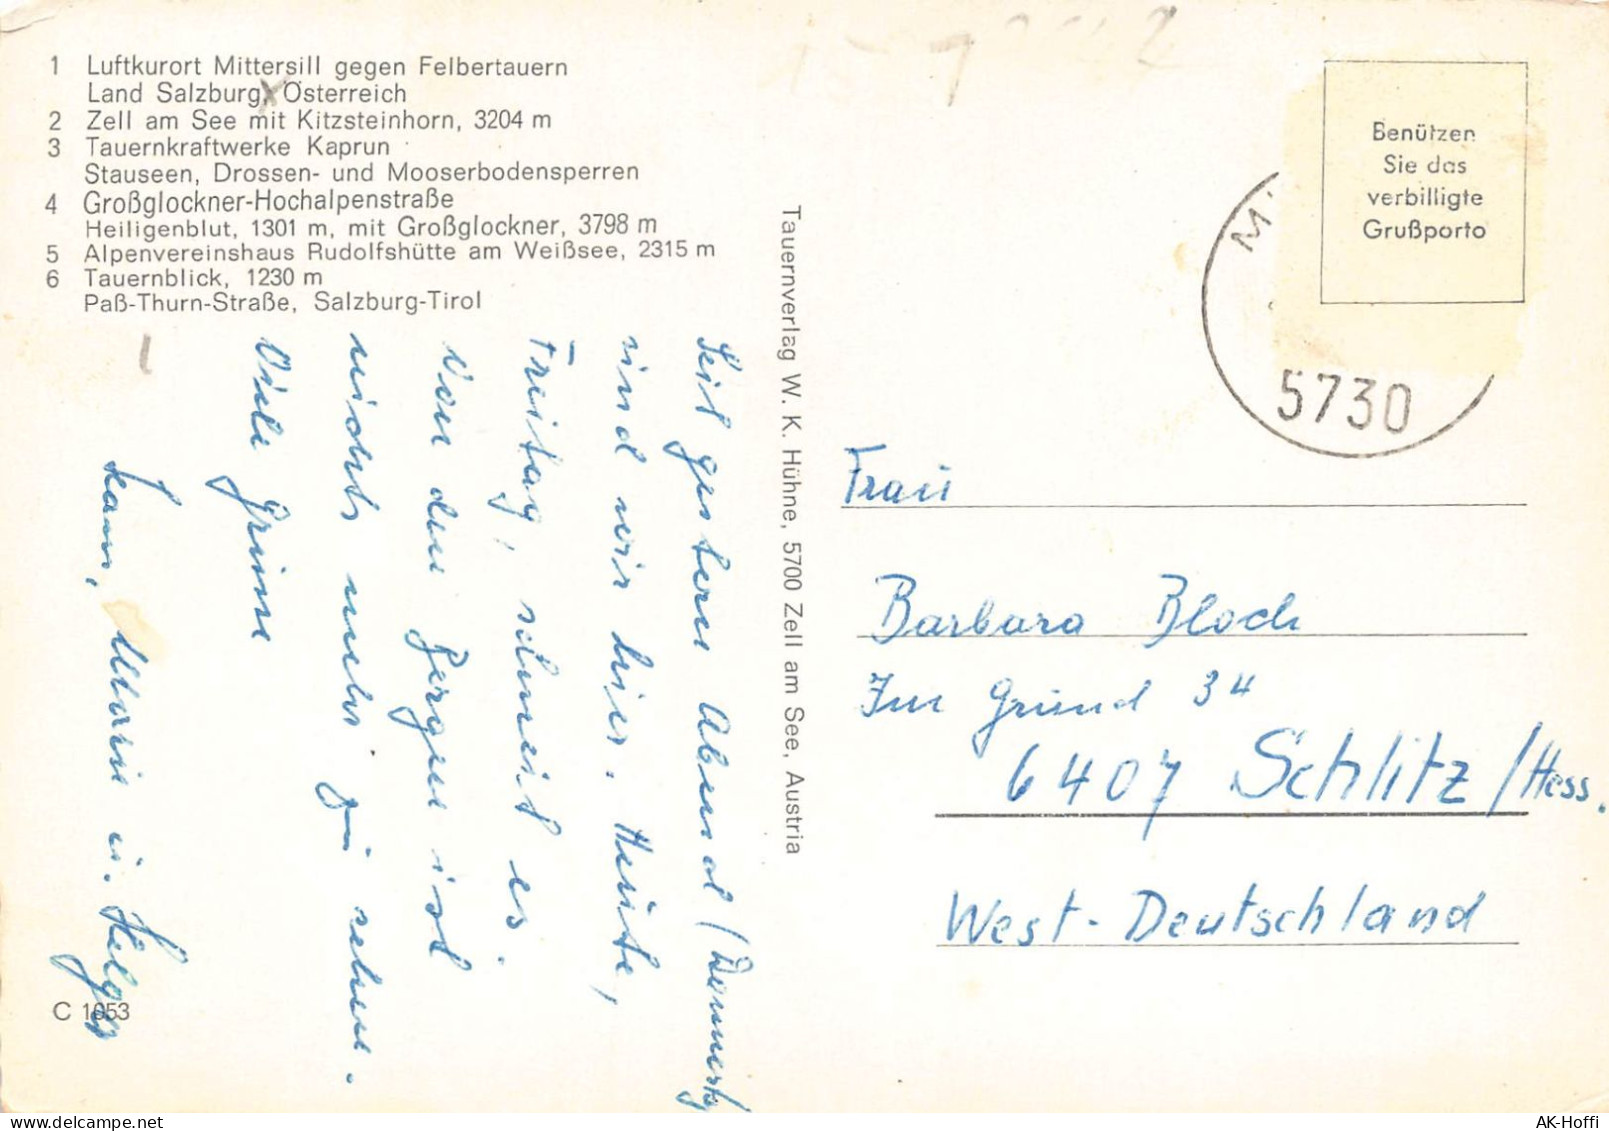 1 Luftkurort Mittersill gegen Felbertauern
Land Salzburg, Österreich
2 Zell am See mit Kitzsteinhorn, 3204 m
3 Tauernkraftwerke Kaprun
Stauseen, Drossen- und Mooserbodensperren
4 Großglockner-Hochalpenstraße
Heiligenblut, 1301 m, mit Großglockner, 3798 m
5 Alpenvereinshaus Rudolfshütte am Weißsee, 2315 m
6 Tauernblick, 1230 m
Paß-Thurn-Straße, Salzburg-Tirol
Seit gestern Abend (Donnerstg
sind wir hier. Heute,
Freitag, schneit es.
Von den Bergen ist
nichts mehr zu sehen.
Viele Grüsse
Marie u. Helga
C 1653
Tauernverlag W. K. Hühne, 5700 Zell am See, Austria
Benützen
Sie das
verbilligte
Grußporto
5730
Frau
Barbara Bloch
Im Grund 34
6407 Schlitz/Hess.
West-Deutschland
AK-Hoffi